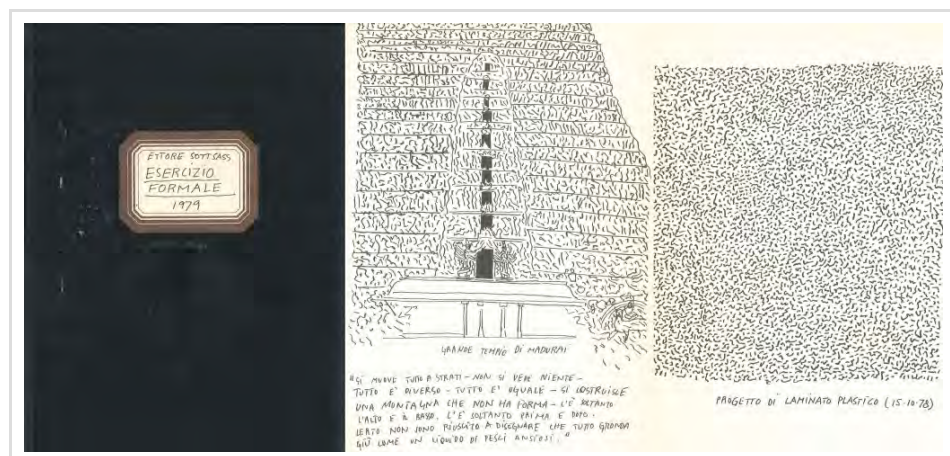 ETTORE SOTTSASS
ESERCIZIO
FORMALE
1979
GRANDE TEMPIO DI MADURAI
"SI MUOVE TUTTO A STRATI – NON SI VEDE NIENTE –
TUTTO E' DIVERSO – TUTTO E' UGUALE – SI COSTRUISCE
UNA MONTAGNA CHE NON HA FORMA – C'È SOLTANTO
L'ALTO E IL BASSO. C'È SOLTANTO PRIMA E DOPO.
CERTO NON SONO RIUSCITO A DISEGNARE CHE TUTTO GRONDA
GIÙ COME UN LIQUIDO DI PESCI ANSIOSI."
PROGETTO DI LAMINATO PLASTICO (15-10-78)